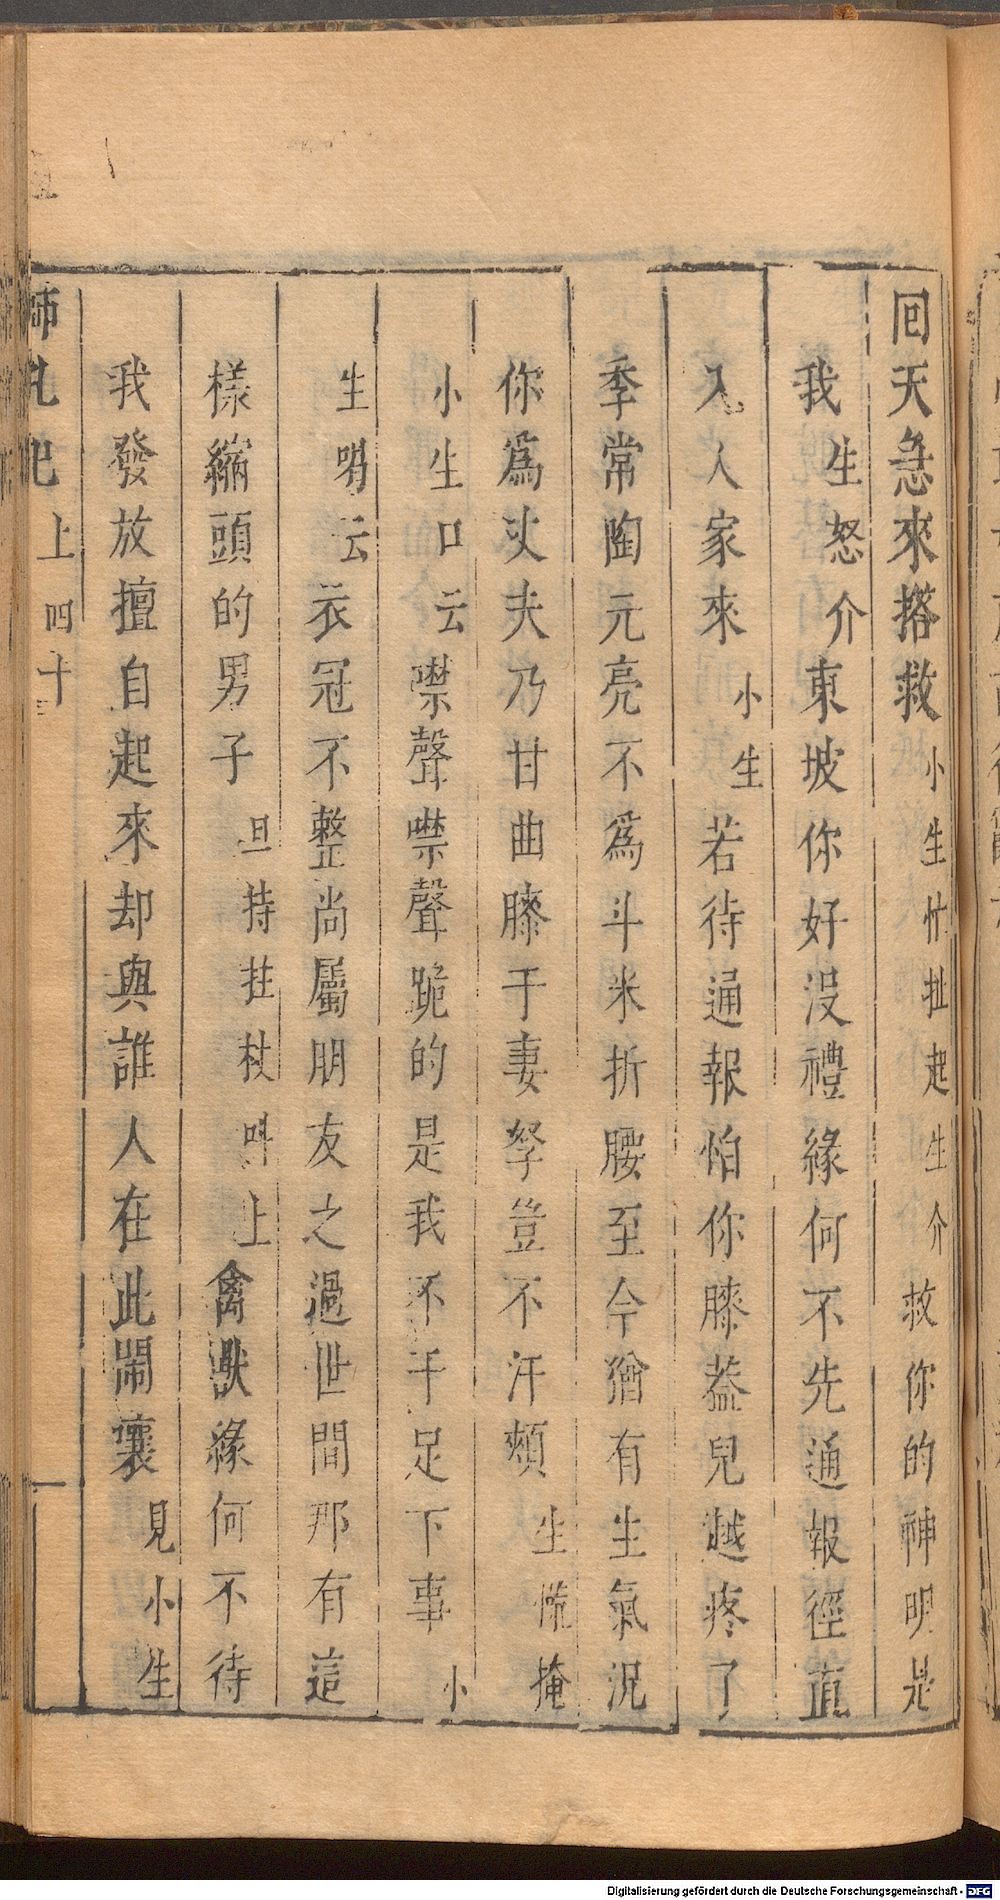 回天急來搭救小生忙扯起生介救你的神明是
我生怒介東坡你好没禮緣何不先通報徑直
入人家來小生若待通報怕你膝葢兒越疼了
季常陶元亮不爲斗米折腰至今猶有生氣況
你爲丈夫乃甘曲膝于妻孥豈不汗頰生慌掩
小生口云噤聲噤聲跪的是我不干足下事小
生喟云衣冠不整尚屬朋友之過世間那有這
樣縮頭的男子旦持拄杖呌上禽獸緣何不待
我發放擅自起來却與誰人在此鬧嚷見小生
師孔巳上四十
Digitalisierung gefördert durch die Deutsche Forschungsgemeinschaft - DFG